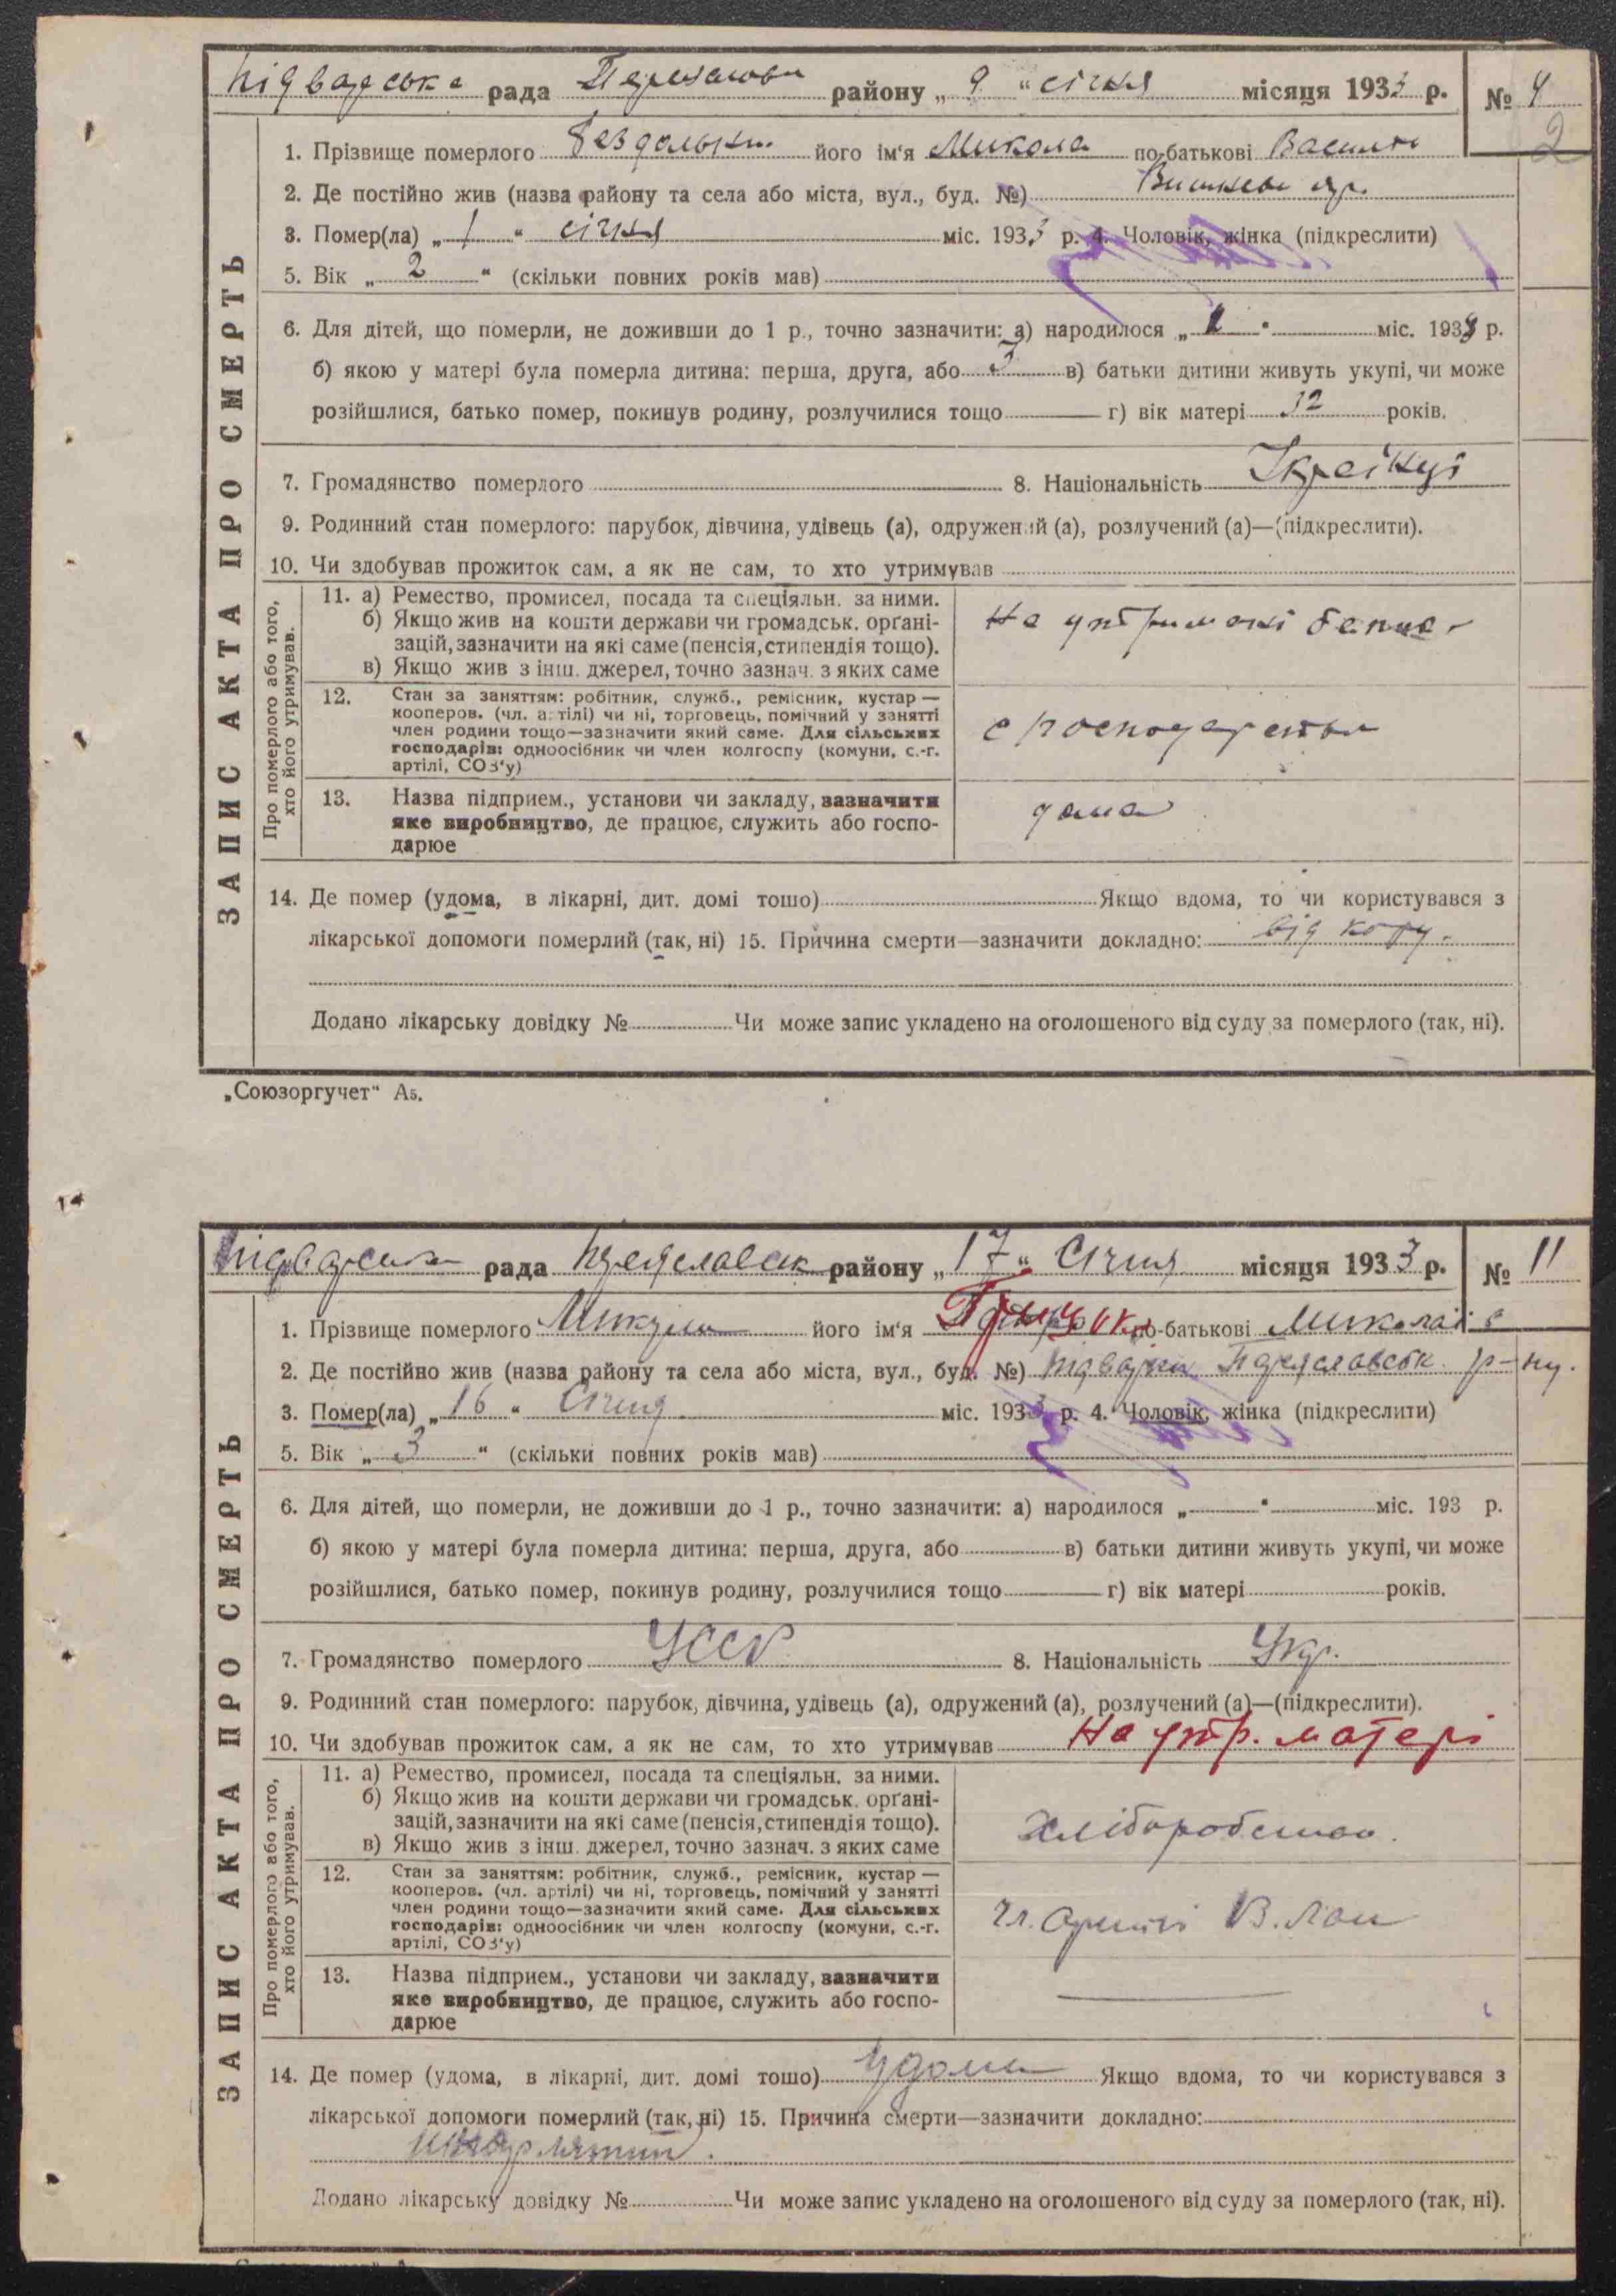 підварська рада району „ 9 “ січня місяця 1933 р. № 4
2
ЗАПИС АКТА ПРО СМЕРТЬ
1. Прізвище померлого його ім‘я Микола по-батькові
2. Де постійно жив (назва району та села або міста, вул., буд. №)
3. Помер(ла) „ 1 “ січня міс. 1933 р. 4. Чоловік, жінка (підкреслити)
5. Вік „ 2 “ (скільки повних років мав)
6. Для дітей, що померли, не доживши до 1 р., точно зазначити: а) народилося „ “ міс. 193 р.
б) якою у матері була померла дитина: перша, друга, або 3 в) батьки дитини живуть укупі, чи може
розійшлися, батько помер, покинув родину, розлучилися тощо г) вік матері 32 років.
7. Громадянство померлого 8. Національність Українці
9. Родинний стан померлого: парубок, дівчина, удівець (а), одружений (а), розлучений (а)—(підкреслити).
10. Чи здобував прожиток сам, а як не сам, то хто утримував
Про померлого або того, хто його утримував.
11. а) Ремество, промисел, посада та спеціяльн. за ними.
б) Якщо жив на кошти держави чи громадськ. орґані-
зацій, зазначити на які саме (пенсія, стипендія тощо).
в) Якщо жив з інш. джерел, точно зазнач. з яких саме
На утримані батька
12. Стан за заняттям: робітник, служб., ремісник, кустар —
кооперов. (чл. артілі) чи ні, торговець, помічний у занятті
член родини тощо—зазначити який саме. Для сільських
господарів: одноосібник чи член колгоспу (комуни, с.-г.
артілі, СОЗ‘у)
с господарства
13. Назва підприєм., установи чи закладу, зазначити
яке виробництво, де працює, служить або госпо-
дарює
дома
14. Де помер (удома, в лікарні, дит. домі тощо) Якщо вдома, то чи користувався з
лікарської допомоги померлий (так, ні) 15. Причина смерти—зазначити докладно: від кору.
Додано лікарську довідку № Чи може запис укладено на оголошеного від суду за померлого (так, ні).
„Союзоргучет“ А5.
підварська рада Переяславськ району „ 17 “ Січня місяця 1933 р. № 11
ЗАПИС АКТА ПРО СМЕРТЬ
1. Прізвище померлого його ім‘я Грицько по-батькові Миколаів
2. Де постійно жив (назва району та села або міста, вул., буд. №) підварки Переяславськ. р-ну.
3. Помер(ла) „ 16 “ Січня міс. 1933 р. 4. Чоловік, жінка (підкреслити)
5. Вік „ 3 “ (скільки повних років мав)
6. Для дітей, що померли, не доживши до 1 р., точно зазначити: а) народилося „ “ міс. 193 р.
б) якою у матері була померла дитина: перша, друга, або в) батьки дитини живуть укупі, чи може
розійшлися, батько помер, покинув родину, розлучилися тощо г) вік матері років.
7. Громадянство померлого УССР 8. Національність Укр.
9. Родинний стан померлого: парубок, дівчина, удівець (а), одружений (а), розлучений (а)—(підкреслити).
10. Чи здобував прожиток сам, а як не сам, то хто утримував На утр. матері
Про померлого або того, хто його утримував.
11. а) Ремество, промисел, посада та спеціяльн. за ними.
б) Якщо жив на кошти держави чи громадськ. орґані-
зацій, зазначити на які саме (пенсія, стипендія тощо).
в) Якщо жив з інш. джерел, точно зазнач. з яких саме
Хліборобство.
12. Стан за заняттям: робітник, служб., ремісник, кустар —
кооперов. (чл. артілі) чи ні, торговець, помічний у занятті
член родини тощо—зазначити який саме. Для сільських
господарів: одноосібник чи член колгоспу (комуни, с.-г.
артілі, СОЗ‘у)
Чл. Артілі В. Лан
13. Назва підприєм., установи чи закладу, зазначити
яке виробництво, де працює, служить або госпо-
дарює
14. Де помер (удома, в лікарні, дит. домі тощо) удома Якщо вдома, то чи користувався з
лікарської допомоги померлий (так, ні) 15. Причина смерти—зазначити докладно:
Додано лікарську довідку № Чи може запис укладено на оголошеного від суду за померлого (так, ні).